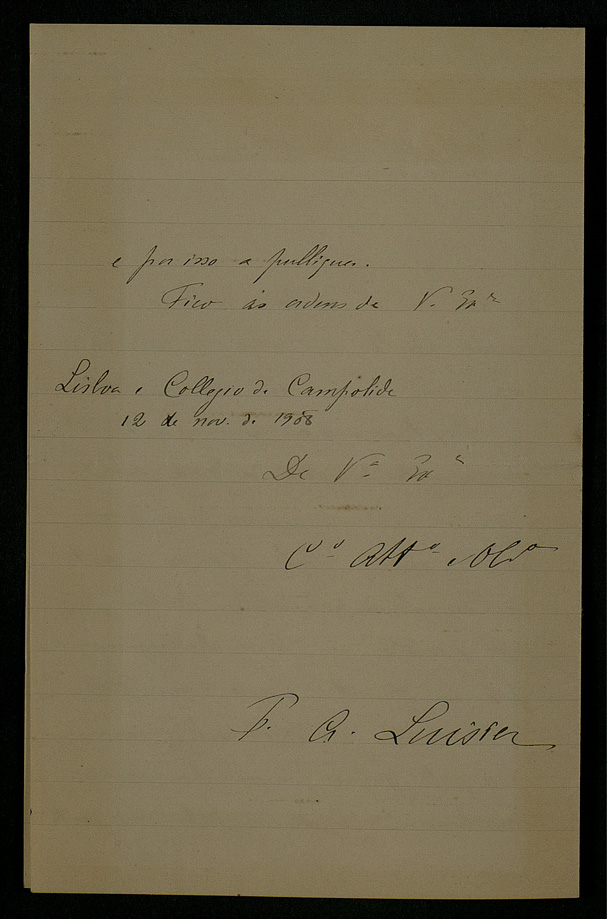 e por isso a publiquei.
Fico ás ordens de V. Exª
Lisboa e Collegio de Campolide
12 de nov. de 1908
De Vª Exª
Cº Attº e Obº
P. A. Luisier